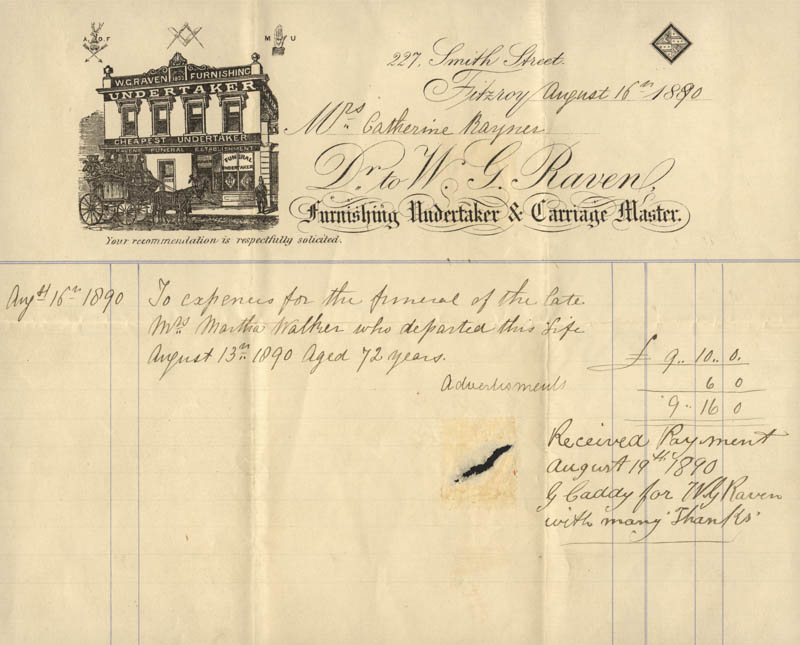 A.O.F
M U
W.G. RAVEN FURNISHING
UNDERTAKER
CHEAPEST UNDERTAKER
FUNERAL ESTABLISHMENT
FUNERAL
UNDERTAKER
Your recommendation is respectfully solicited.
227, Smith Street.
Fitzroy August 16th 1890
Mrs Catherine Rayner
Dr. to W. G. Raven,
Furnishing Undertaker & Carriage Master.
Augst 16th 1890 To expences for the funeral of the late
Mrs Martha Walker who departed this Life
August 13th 1890 Aged 72 years. £ 9.. 10.. 0.
Advertisments 6 0
9.. 16 0
Received Payment
August 19th 1890
G Caddy for W.G Raven
with many Thanks